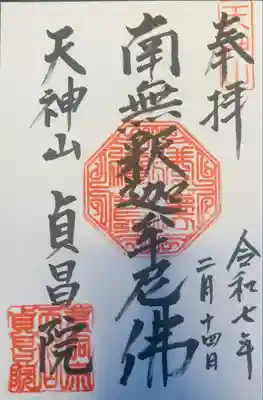 天神山
奉拝
令和七年
二月十四日
南無釈迦牟尼佛
天神山 貞昌院
曹洞宗
貞昌院